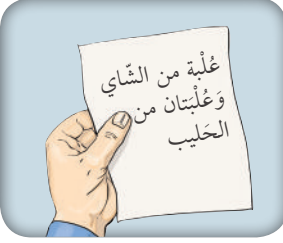 عُلْبة من الشّاي
وَعُلْبَتان من
الحَليب